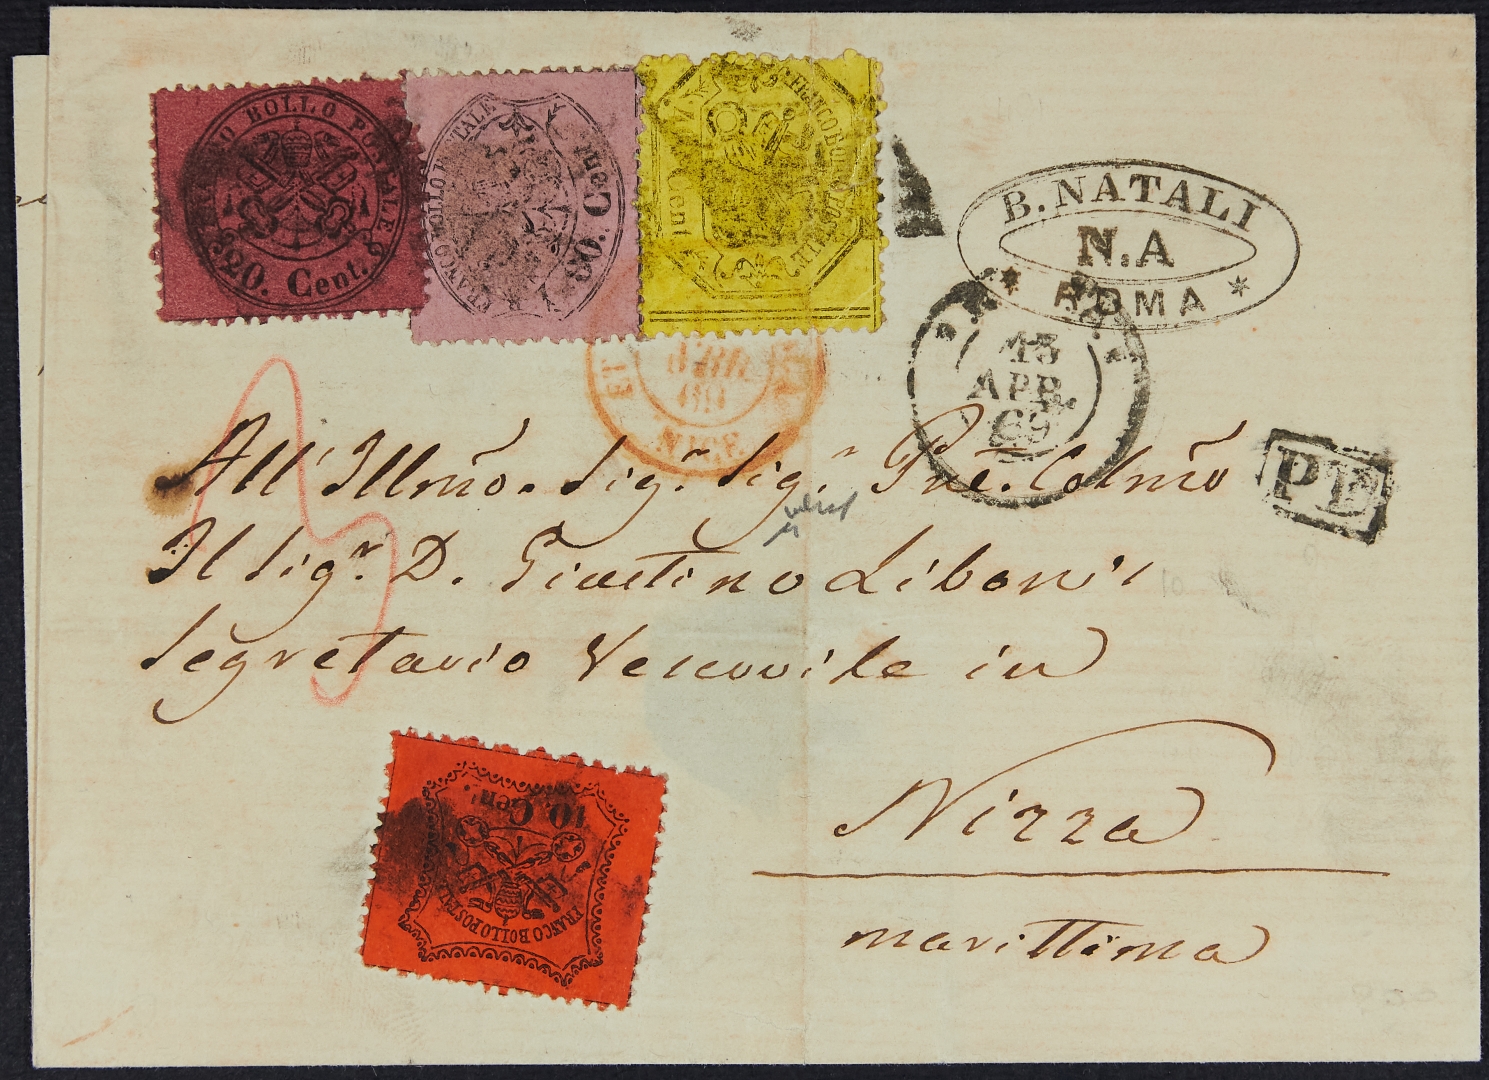 FRANCO BOLLO POSTALE
20. Cent.
FRANCO BOLLO POSTALE
80. Cent.
FRANCO BOLLO POSTALE
Cent
B. NATALI
N.A
* ROMA *
ROMA
13
APR
69
NICE
PD
All' Illmo. Sig.r Sig.r Colmo
Il Sig.r D. Giustino Liboni
Segretario Vescovile in
Nizza
marittima
10 Cent.
FRANCO BOLLO POSTALE